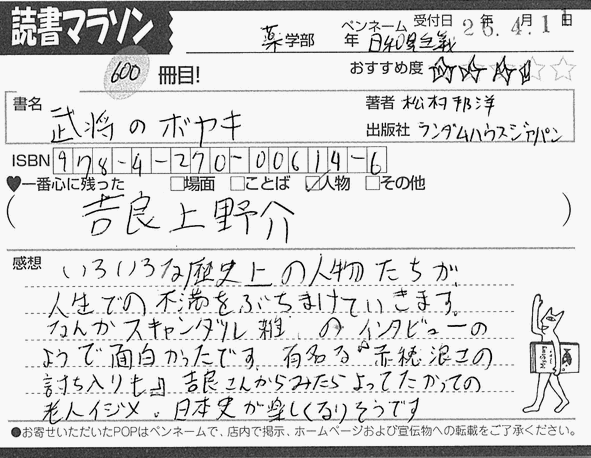 読書マラソン
薬学部 年 ペンネーム 日和見主義 受付日 26年4月11日
600冊目! おすすめ度 ☆☆☆☆☆
書名 武将のボヤキ 著者 松村邦洋
出版社 ランダムハウスジャパン
ISBN 978-4-270-00614-6
♥一番心に残った □場面 □ことば ☑人物 □その他
(吉良上野介)
感想 いろいろな歴史上の人物たちが
人生での不満をぶちまけていきます。
なんかスキャンダル雑のインタビューの
ようで面白かったです。有名な『赤穂浪士の
討ち入りも』吉良さんからみたらよってたかっての
老人イジメ。日本史が楽しくなりそうです
●お寄せいただいたPOPはペンネームで、店内で掲示、ホームページおよび宣伝物への転載をご了承ください。